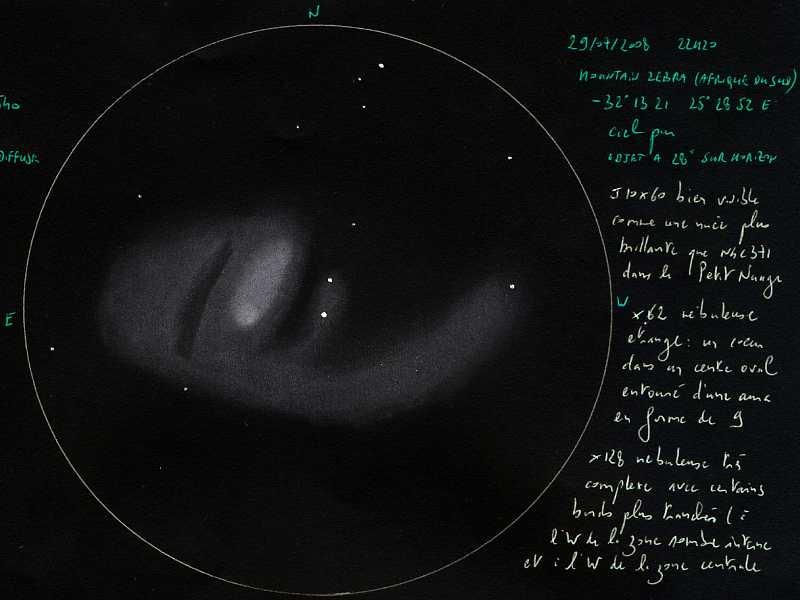 N
29/07/2008 22h20
MOUNTAIN ZEBRA (AFRIQUE DU SUD)
-32° 13 21 25° 28 52 E
ciel pur
OBJET A 28° SUR HORIZON
J10x60 bien visible
comme une nuée plus
brillante que NGC371
dans le Petit Nuage
E
W
x62 nébuleuse
étrange : un cœur
dans un centre oval
entouré d'une
en forme de 9
x128 nébuleuse très
complexe avec certains
bords plus tranchés ( à
l'W de la zone sombre interne
et à l'W de la zone centrale